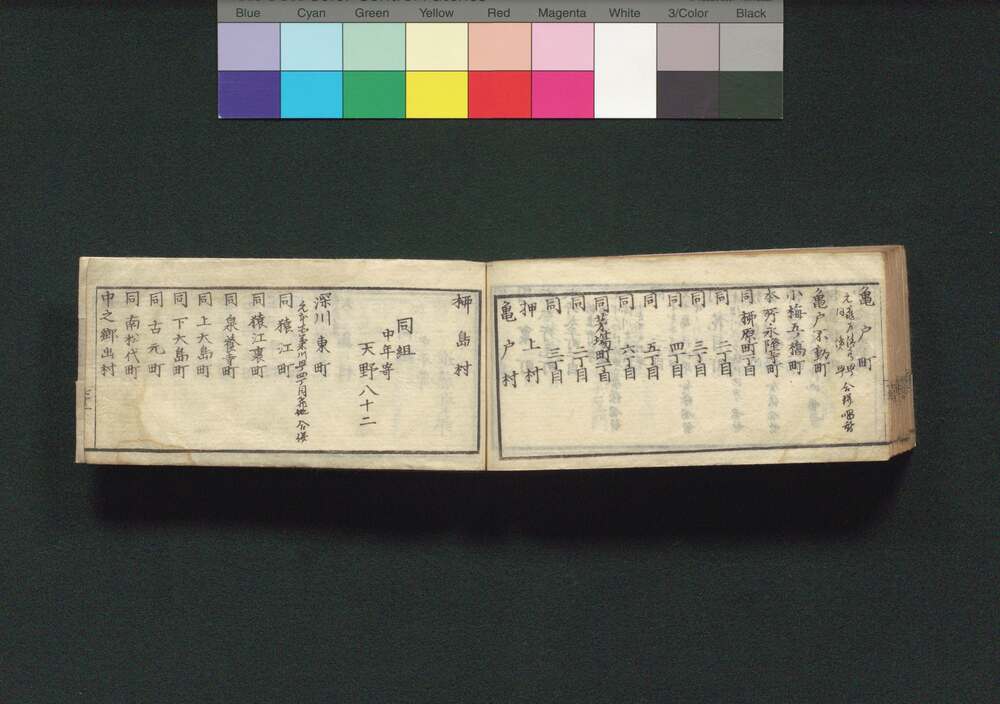 Blue Cyan Green Yellow Red Magenta White 3/Color Black
亀戸町
亀戸不動町
小梅五之橋町
本所永隆寺町
同柳原町一丁目
同二丁目
同三丁目
同四丁目
同五丁目
同六丁目
同茅場町一丁目
同二丁目
同三丁目
押上村
亀戸村
柳島村
同組
中年寄
天野八十二
深川東町
同猿江町
同猿江裏町
同泉養寺町
同上大島町
同下大島町
同古元町
同南松代町
中之郷出村